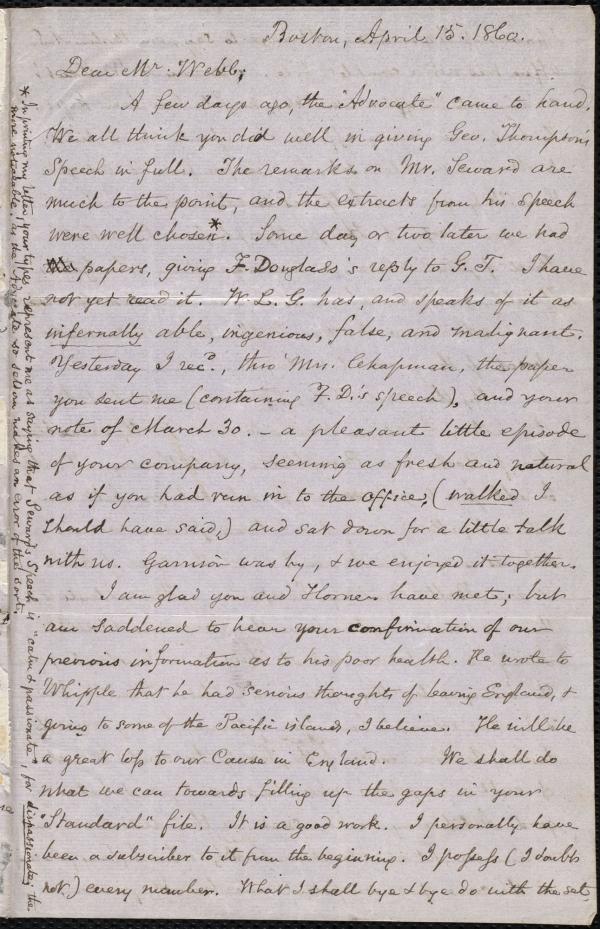 Boston, April 15. 1860.
Dear Mr. Webb;
A few days ago, the "Advocate" came to hand.
We all think you did well in giving Geo. Thompson's
Speech in full. The remarks on Mr. Seward are
much to the point, and the extracts from his speech
were well chosen*. Some day or two later we had
papers, giving F. Douglass's reply to G. T. I have
not yet read it. W. L. G. has, and speaks of it as
infernally able, ingenious, false, and malignant.
Yesterday I recd., thro' Mrs. Chapman, the paper
you sent me (containing F. D.'s speech), and your
note of March 30. – a pleasant little episode
of your company, seeming as fresh and natural
as if you had run in to the office, (walked I
should have said,) and sat down for a little talk
with us. Garrison was by, & we enjoyed it together.
I am glad you and Horner have met; but
am saddened to hear your confirmation of our
previous information as to his poor health. He wrote to
Whipple that he had serious thoughts of leaving England, &
going to some of the Pacific islands, I believe. He will be
a great loss to our Cause in England. We shall do
what we can towards filling up the gaps in your
"Standard" file. It is a good work. I personally have
been a subscriber to it from the beginning. I possess (I doubt
not) every number. What I shall bye & bye do with the set,
* In printing my letter, your types represent me as saying that Seward's Speech is "calm & passionate", for dispassionate; the
more noticeable, as the Advocate so seldom makes an error of the sort.